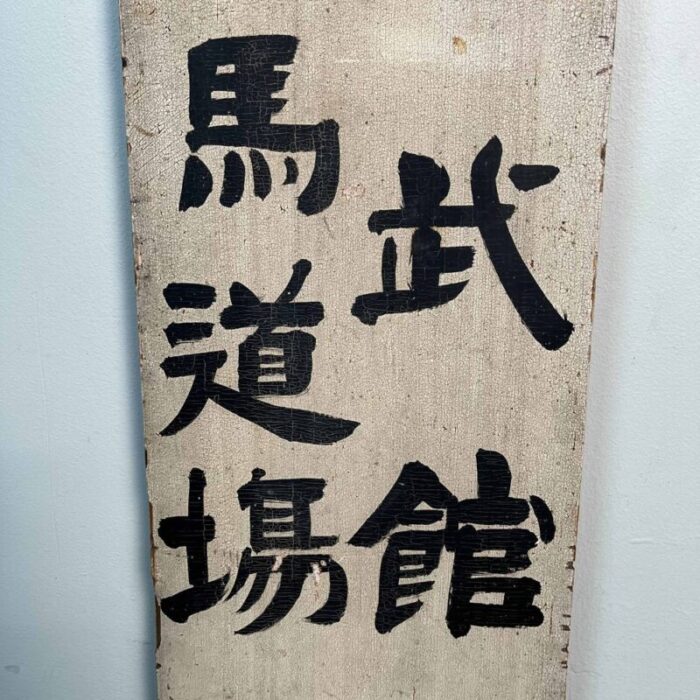 武館
馬道場